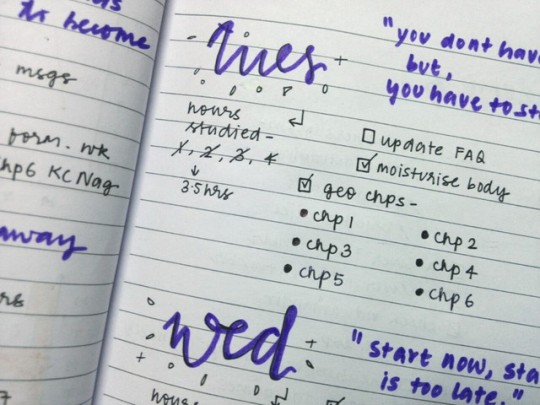 to become
msgs
form. wk
Chp6 KC Nag
away
tues
"you dont have
but,
you have to
hours
studied-
1, 2, 3, 4
3.5hrs
update FAQ
moisturise body
geo chps-
• chp 1
• chp 2
• chp 3
• chp 4
• chp 5
• chp 6
wed
"start now,
is too late."